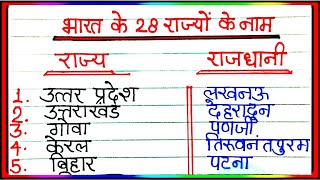 भारत के 28 राज्यों के नाम
राज्य राजधानी
1. उत्तर प्रदेश लखनऊ
2. उत्तराखंड देहरादून
3. गोवा पणजी
4. केरल तिरुवनंतपुरम
5. बिहार पटना